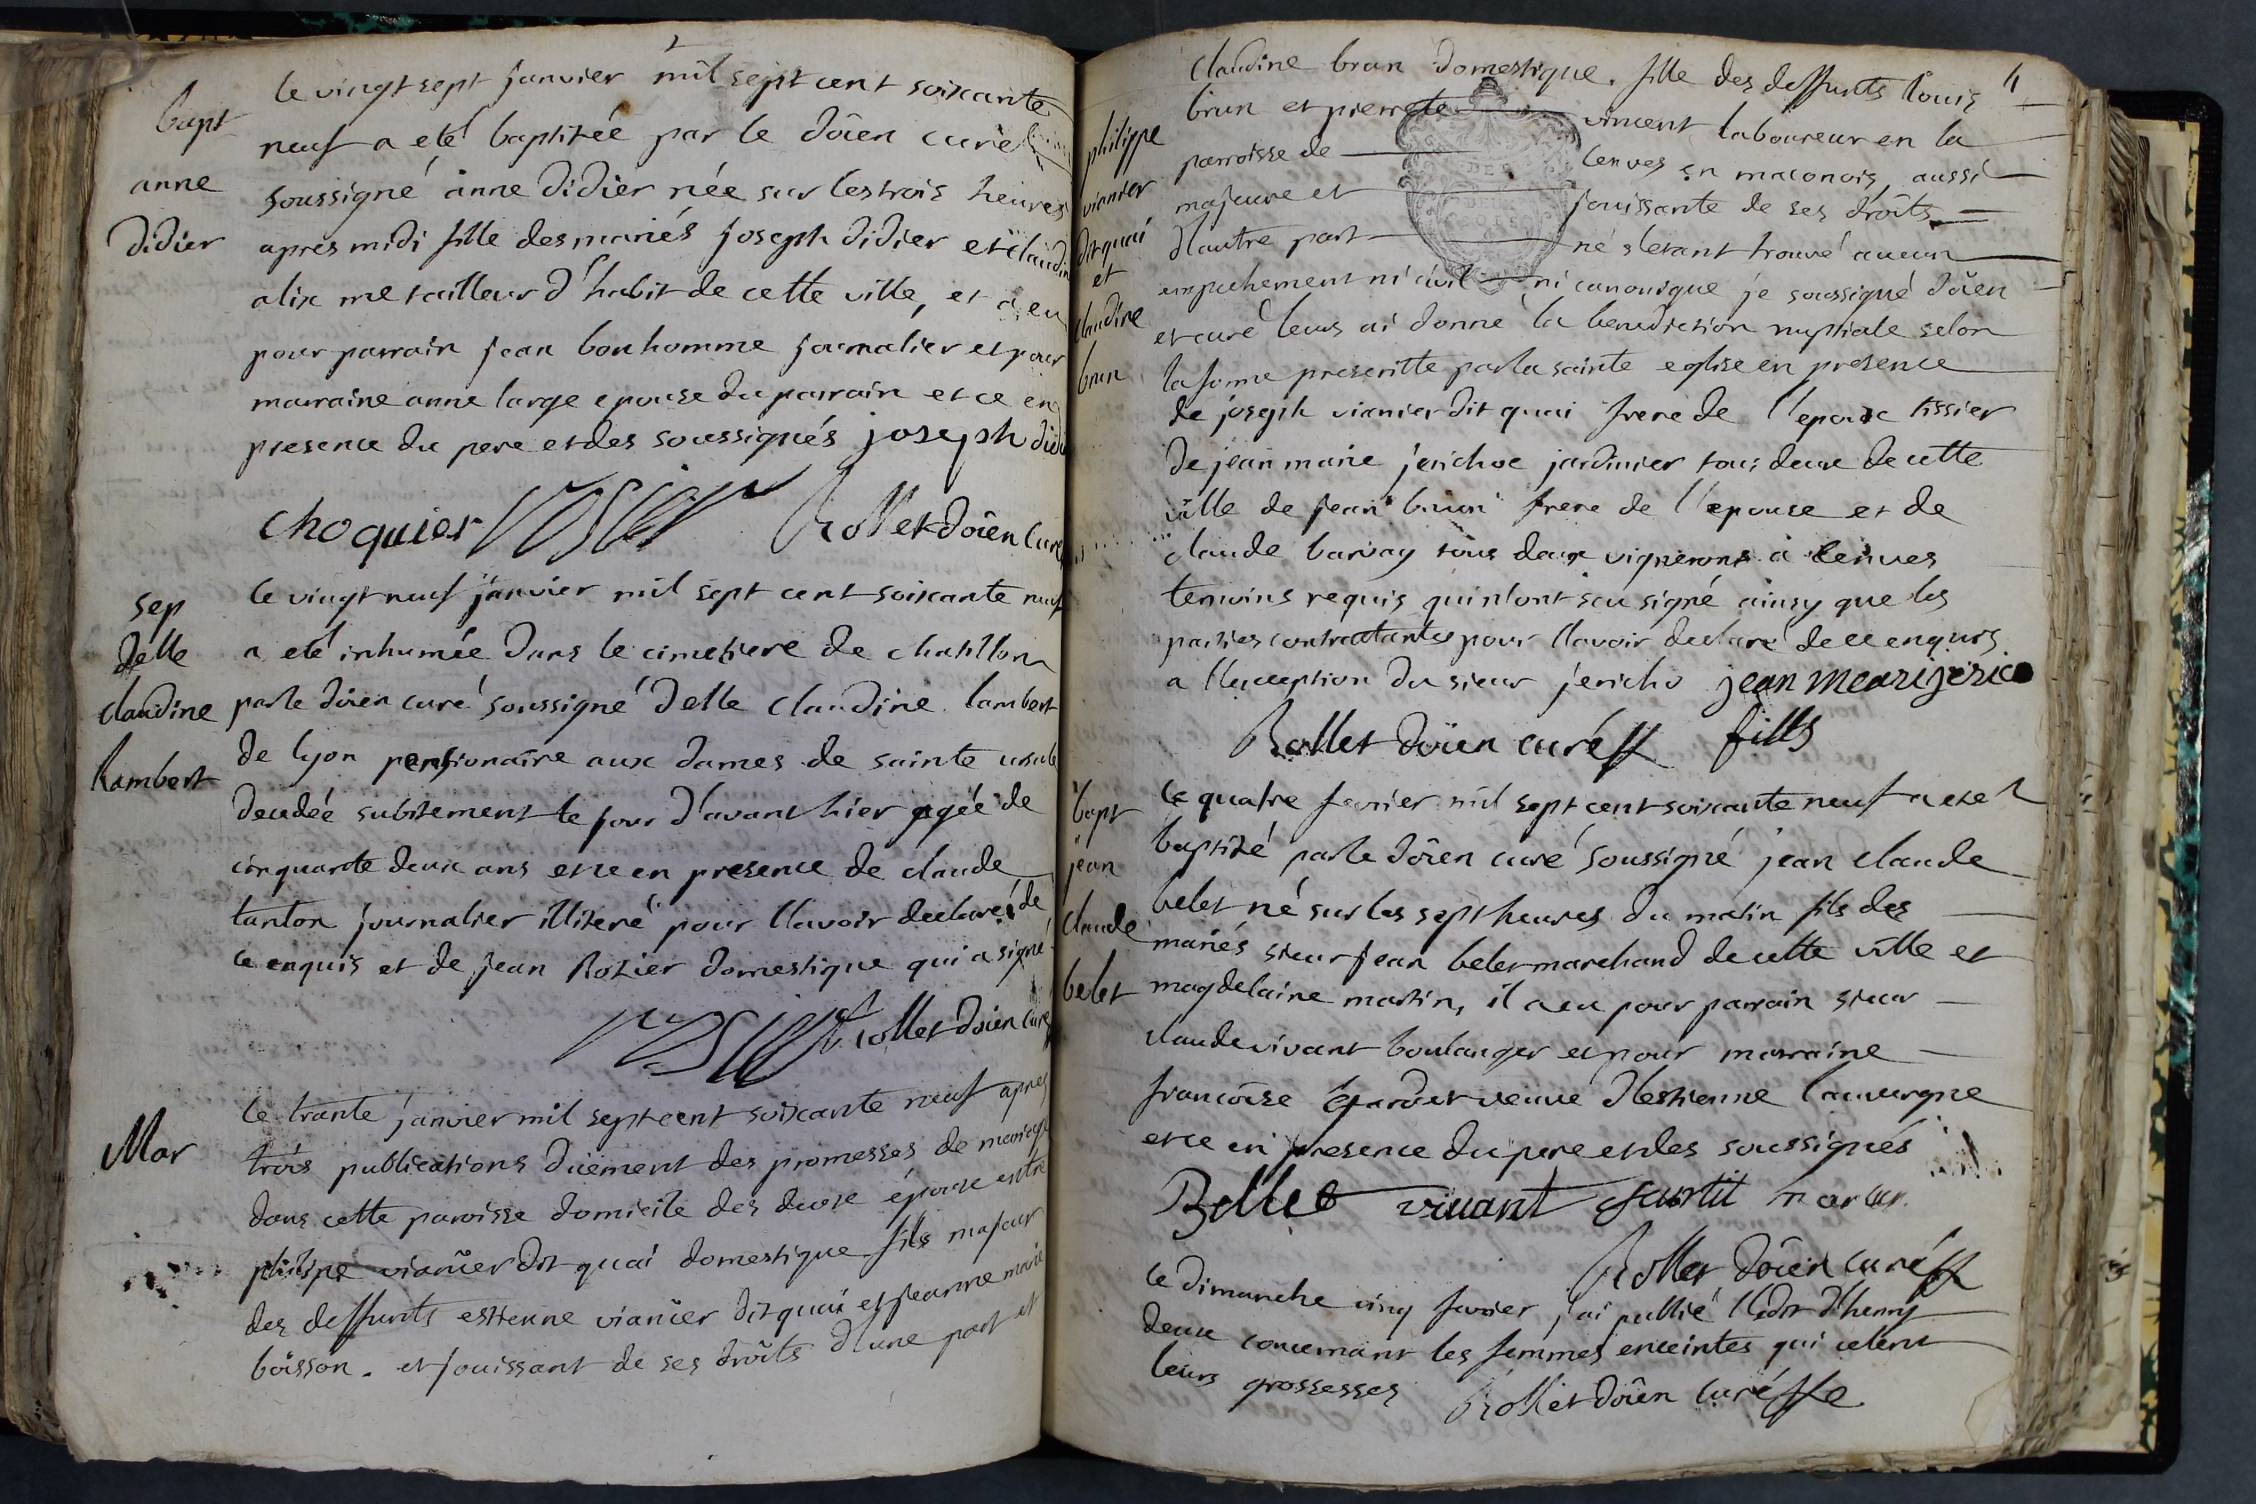 bapt
anne
didier
le vingt sept janvier mil sept cent soixante
neuf a eté baptizéé par le doïen curé
soussigné anne didier née sur les trois heures
apres midi fille des mariés joseph didier et claudine
alix me tailleur d'habit de cette ville, et a eu
pour parrain jean bonhomme journalier et pour
marraine anne large epouse du parrain et ce en
presence du pere et des soussignés joseph didier
choquier Rollet doïen curé
sep
delle
claudine
lambert
le vingt neuf janvier mil sept cent soixante neuf
a eté inhumée dans le cimetiere de chatillon
par le doïen curé soussigné delle claudine lambert
de lyon pensionaire aux dames de sainte ursule
decedéé subitement le jour d'avant hier agéé de
cinquante deux ans et ce en presence de claude
tanton journalier illiteré pour l'avoir declaré de
ce enquis et de jean Rozier domestique qui a signé
Rollet doïen curé
Mar
le trante janvier mil sept cent soixante neuf apres
trois publications düement des promesses de mariage
dans cette paroisse domicile des deux époux entre
philipe vianïer dit quai domestique fils majeur
des deffunts estienne vianïer dit quai et jeanne marie
boisson. et jouissant de ses droits d'une part et
4
philippe
vianier
dit quai
et
claudine
brun
claudine brun domestique. fille des deffunts louis
brun et pierrete vincent laboureur en la
parroisse de lenves en maconois, aussi
majeure et jouissante de ses droits
d'autre part né s'etant trouvé aucun
empechement ni civil ni canonique je soussigné doïen
et curé leurs ai donné la benediction nuptiale selon
la forme prescritte par la sainte eglise en presence
de joseph vianier dit quai frere de l'epoux tissier
de jean marie jerichoe jardinier tous deux de cette
ville de jean brun frere de l'epouse et de
claude barvay tous deux vignerons à lenves
temoins requis qui n'ont scu signé ainsy que les
parties contractantes pour l'avoir declaré de ce enquis
a l'exception du sieur jericho jean mearijerico
Rollet doïen curé fills
bapt
jean
claude
belet
le quatre fevrier mil sept cent soixante neuf a eté
baptizé par le doïen curé soussigné jean claude
belet né sur les sept heures du matin fils des
mariés sieur jean belet marchand de cette ville et
magdelaine martin, il a eu pour parrain sieur
claude vivant boulanger et pour marraine
francoise veuve d'estienne lauvergne
et ce en presence du pere et des soussignés
Bellet vivant
Rollet doïen curé
le dimanche cinq fevrier, j'ai publié l'edit d'henry
deux concernant les femmes enceintes qui celent
leurs grossesses Rollet doïen curé